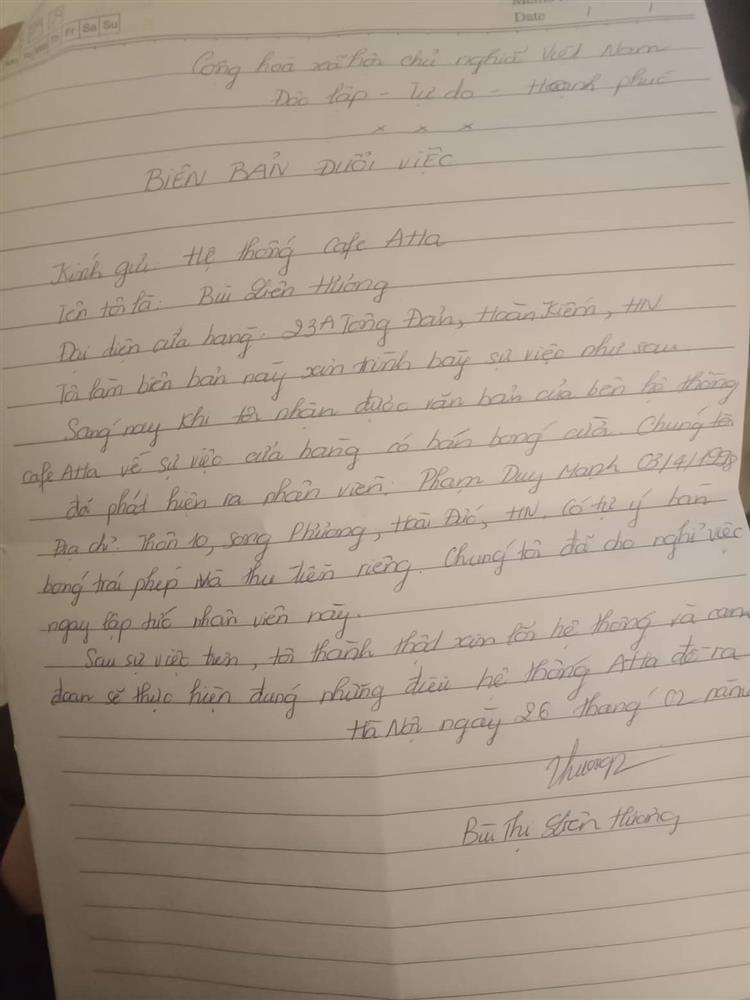 Fr Sa Su
Date / /
Cộng hoà xã hội chủ nghĩa Việt Nam
Độc lập - Tự do - Hạnh phúc
x x x
BIÊN BẢN ĐUỔI VIỆC
Kính gửi: Hệ thống cafe Atta
Tên tôi là: Bùi Liên Hương
Đại diện cửa hàng: 23A Tông Đản, Hoàn Kiếm, HN
Tôi làm biên bản này xin trình bày sự việc như sau.
Sáng nay khi tôi nhận được văn bản của bên hệ thống
cafe Atta về sự việc cửa hàng có bán bóng cười. Chúng tôi
đã phát hiện ra nhân viên: Phạm Duy Mạnh 03/4/1998
Địa chỉ: Thôn 10, Song Phương, Hoài Đức, HN. Có tự ý bán
bóng trái phép mà thu tiền riêng. Chúng tôi đã cho nghỉ việc
ngay lập tức nhân viên này.
Sau sự việt trên, tôi thành thật xin lỗi hệ thống và cam
đoan sẽ thực hiện đúng những điều hệ thống Atta đề ra
Hà Nội ngày 26 tháng 02 năm
Hương
Bùi Thị Liên Hương